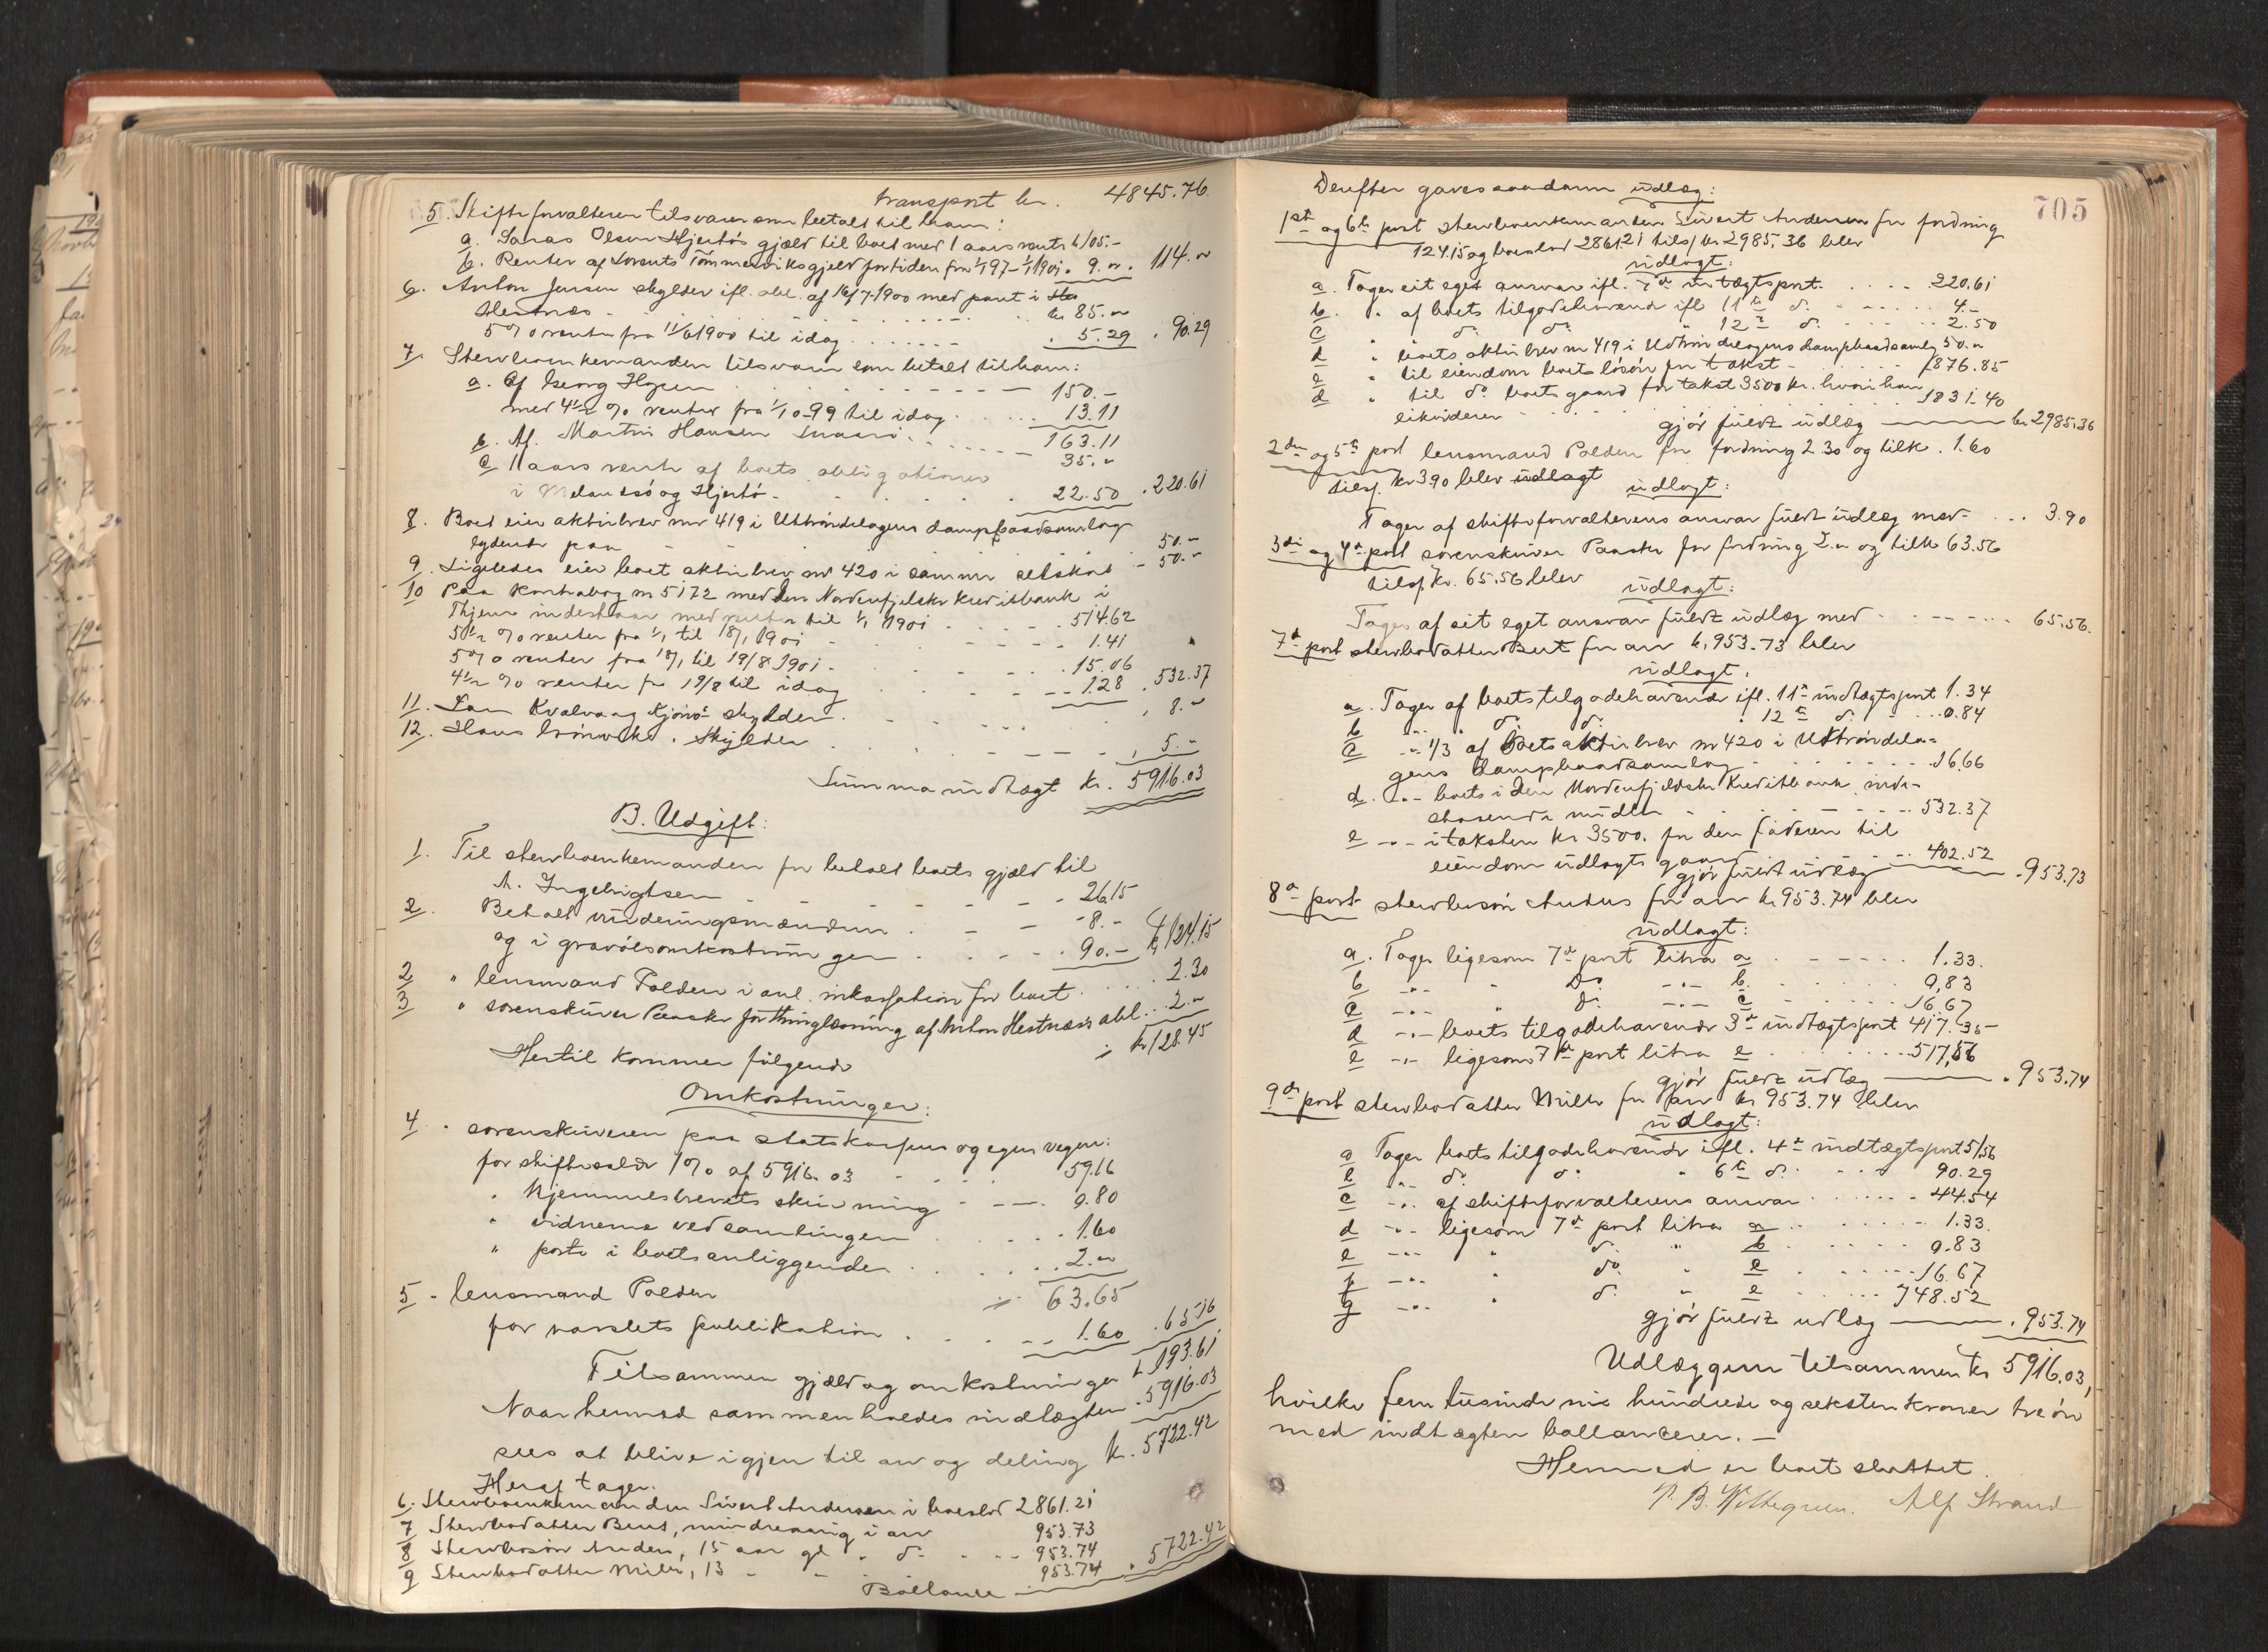 transport kr. 4845.76
5. Skifteforvalteren tilsvarer som betalt til ham:
a. Olsen Hjertøs gjæld til boet med 1 aars rente kr 105.-
b. Renter af Lorents Tømmerviks gjæld for tiden fra 1/1 97 - 1/1 1901 . 9.00 . 114.00
6. Anton Jensen skylder ifl. obl. af 16/7-1900 med pant i
Hestnæs . . . kr 85.00
5 % rente fra 11/6 1900 til idag . . . . 5.29 . 90.29
7. Sterboenkemanden tilsvarer som betalt til ham:
a. Af Georg Hopen . . . 150.-
med 4½ % renter fra 1/10-99 til idag . . . 13.11
163.11
b. Af Martin Hansen . . . 35.-
c 1 aars rente af boets obligationer
i Melandsø og Hjertø . . . 22.50 . 220.61
8. Boet eier aktiebrev nr 419 i Uttrøndelagens dampbaadsamlag
lydende paa . . . 50.-
9. Ligeledes eier boet aktiebrev nr 420 i samme selskab - 50.-
10 Paa Kontrabog nr 5172 med den Nordenfjelske Kreditbank i
Thjem indestaar med renter til 1/1 1901 . . . 514.62
5½ % renter fra 1/1 til 18/1 1901 . . . 1.41
5 % renter fra 18/1 til 19/8 1901 . . . 15.06
4½ % renter fra 19/8 til idag . . . 1.28 . 532.37
11. Kvalvaag Kjønø skylder . . . 8.-
12. Hans skylder . . . 5.-
Summa indtægt kr. 5916.03
B. Udgift:
1. Til sterboenkemanden for betalt boets gjæld til
A. Ingebrigtsen . . . 26.15
2. Betalt vurderingsmændene . . . 8.-
og i gravølsomkostninger . . . 90.- kr 124.15
2 " lensmand Polden i anl. inkassation for boet . . . 2.30
3 " sorenskriver Paaske for thinglæsning af Anton Hestnæs's obl. . 2.-
÷ kr 128.45
Hertil kommer følgende
Omkostninger:
4 . sorenskriveren paa statskassens og egne vegne:
for skiftesalær 1% af 5916.03 . . . 59.16
. hjemmelsbrevets skrivning . . . 0.80
" vidnerne ved samlingen . . . 1.60
" porto i boets anliggender . . . 2.00
5 - lensmand Polden ÷ 63.65
for varslets publikation . . . 1.60 . 65.16
Tilsammen gjæld og omkostninger kr 193.61
Naar hermed sammenholdes indtægten . 5916.03
sees at blive igjen til arv og deling kr. 5722.42
Heraf tager.
6. Sterboenkemanden Sivert Andersen i boeslod 2861.21
7 Sterbodatter Berit, mindreaarig i arv 953.73
8 Sterbosøn Anders, 15 aar gl . do - . . 953.74
9 Sterbodatter Milla, 13 - - 953.74 . 5722.42
Ballance
705
Derefter gaves saadann udlæg:
1ste og 6te post sterboenkemanden Sivert Andersen for fordring
124.15 og boeslod 2861.21 tils. kr 2985,36 blev
udlagt:
a. Tages sit eget ansvar ifl. 7de indtægtspost . . . 220.61
b. " af boets tilgodehavende ifl 11te do . . . 4.-
c " do do " 12te do . . . 2.50
d " boets aktiebrev nr 419 i Uttrøndelagens dampbaadsamlag 50.00
e " til eiendom boets løsøre for takst . . . 876.85
d " til do boets gaard for takst 3500 kr. hvori han
likviderer . . . 1831.40
gjør fuldt udlæg kr 2985.36
2den og 5te post lensmand Polden for fordring 2.30 og tilk. 1.60
tils. kr 3.90 blev udlagt udlagt:
Tages af skifteforvalterens ansvar fuldt udlæg med . . . 3.90
3die og 4de post sorenskriver Paaske for fordring 2.00 og tilk 63.56
tils. kr. 65.56 blev udlagt:
Tages af sit eget ansvar fuldt udlæg med . . . 65.56.
7de post sterbodatter Berit for arv kr. 953.73 blev
udlagt.
a. Tages af boets tilgodehavende ifl. 11te indtægtspost 1.34
b " do do " 12te do . . . 0.84
c -"- 1/3 af Boets aktiebrev nr 420 i Uttrøndela-
gens dampbaadsamlag . . . 16.66
d. -"- boets i den Nordenfjeldske Kreditbank inde-
staaende midler . . . 532.37
e -"- i taksten kr 3500. for den faderen til
eiendom udlagte gaard . . . 402.52
gjør fuldt udlæg . 953.73
8de post sterbosøn Anders for arv kr 953.74 blev
udlagt:
a. Tages ligesom 7de post litra a . . . 1.33.
b -"- " Do -"- b . . . 0,83
c -"- " do -"- c . . . 16.67
d -"- boets tilgodehavende 3die indtægtspost 417.35
e -"- ligesom 7de post litra e . . . 517,56
gjør fuldt udlæg . 953.74
9de post sterbodatter Milla for arv kr 953.74 blev
udlagt:
a Tages boets tilgodehavende ifl. 4de indtægtspost 51.56
b -"- do do " 6te do . . . 90.29
c -"- af skifteforvalterens ansvar . . . 44.54
d -"- ligesom 7de post litra a . . . 1.33.
e -"- " do " b . . . 0.83
f -"- " do " c . . . 16.67
g -"- " do " e . . . 748.52
gjør fuldt udlæg . 953.74
Udlæggene tilsammen kr 5916.03,
hvilke fem tusinde ni hundrede og seksten kroner tre øre
med indtægten ballancerer. -
Hermed er boet sluttet
Alf Strand